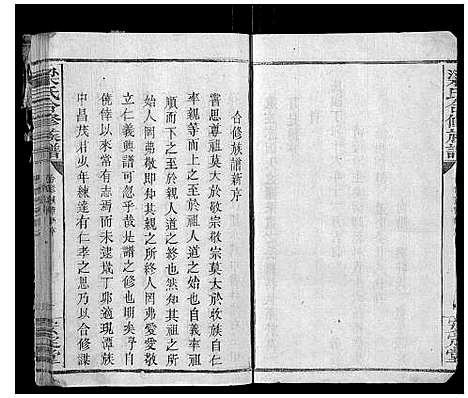 梁氏合修族譜
安定堂
合修族譜新序
嘗思尊祖莫大於敬宗敬宗莫大於收族自仁
率親等而上之至於祖人道之㫖也自義率祖
順而下之至於親人道之終也然知其祖之所
始人罔弗敬即知其親之所終人罔弗愛愛敬
立仁義興譜可忽乎哉是譜之修也明矣予
僥倖以來常有志焉而未逮歲丁卯適現潭族
中昌茂君少年練達有仁孝之思乃以合修謀
梁氏合修族譜
安定堂